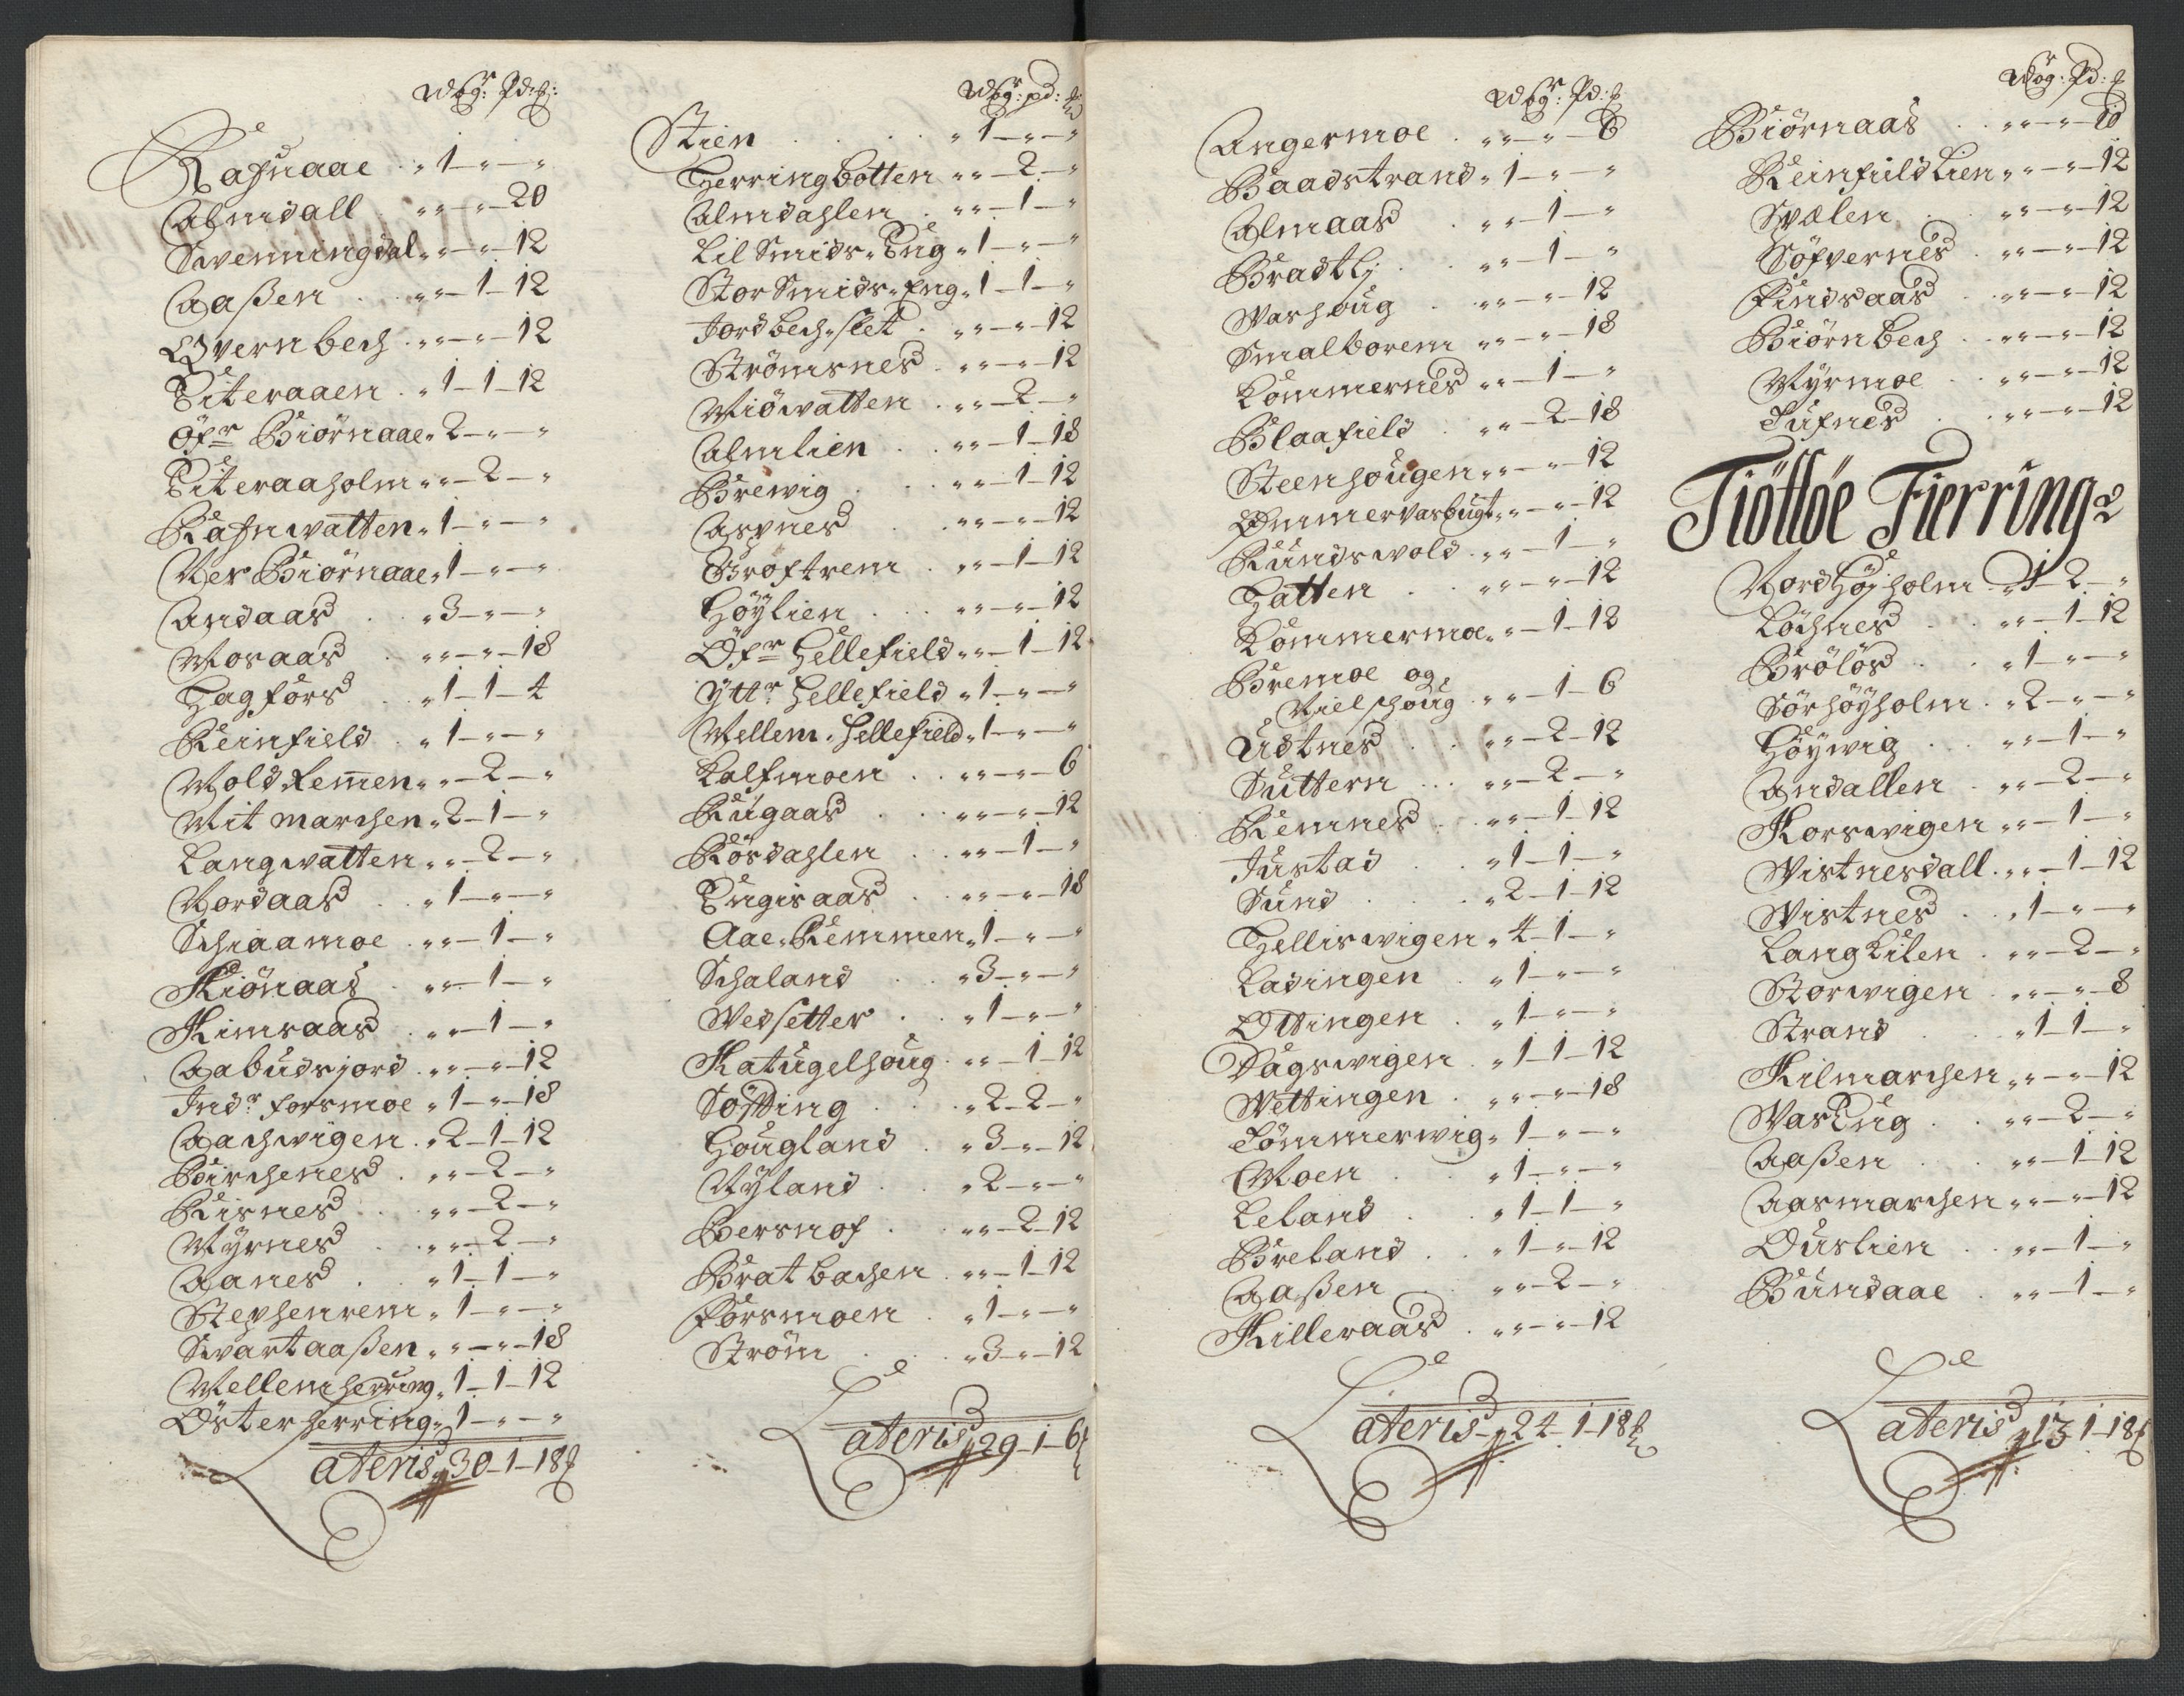 Wog: Pd: ℔:
Rafnaae „ 1 – „ – „
Almdall „ „ – „ – 20
Svenningdal „ „ – „ – 12
Aaßen „ „ – 1 – 12
Qvernbech „ „ – „ – 12
Diteraaen „ 1 – 1 – 12
Öfr Biörnaae „ 2 – „ – „
Diteraaholm „ „ – 2 – „
Rafnwatten „ 1 – „ – „
Ner Biörnaae „ 1 – „ – „
Andaas „ 3 – „ – „
Mosaas „ „ – „ – 18
Hagfors „ 1 – 1 – 4
Reinfield „ 1 – „ – „
Wold Remen „ „ – 2 – „
Mit marchen „ 2 – 1 – „
Langwatten „ „ – 2 – „
Nordaas „ 1 – „ – „
Schiaamoe „ „ – 1 – „
Kiönaas „ „ – 1 – „
Kimsaas „ „ – 1 – „
Aabudsjord „ „ – „ – 12
Indr forsmoe „ 1 – „ – 18
Aachwigen „ 2 – 1 – 12
Birchenes „ „ – 2 – „
Risnes „ „ – 2 – „
Myrnes „ „ – 2 – „
Aanes „ 1 – 1 – „
Stephenrem „ 1 – „ – „
Svartaaßen „ „ – „ – 18
Mellem herring „ 1 – 1 – 12
Österherring „ 1 – „ – „
Lateris „ 30 – 1 – 18 ℔
Wog: pd: ℔
Stien „ 1 – „ – „
Herringbotten „ „ – 2 – „
Almdahlen „ „ – 1 – „
Lil Smids-Eng „ 1 – „ – „
Stor Smids-Eng „ 1 – 1 – „
Jordbech-slet „ „ – „ – 12
Strömsnes „ „ – „ – 12
Miöwatten „ „ – 2 – „
Almlien „ „ – 1 – 18
Brewig „ „ – 1 – 12
Aspnes „ „ – „ – 12
Groftrem „ „ – 1 – 12
Höylien „ „ – „ – 12
Öfr Hellefield „ „ – 1 – 12
Yttr Hellefield „ 1 – „ – „
Mellem-Hellefield „ 1 – „ – „
Kalfmoen „ „ – „ – 6
Rugaas „ „ – „ – 12
Rösdahlen „ „ – 1 – „
Engisaas „ „ – „ – 18
Aae-Remmen „ 1 – „ – „
Schaland „ 3 – „ – „
Wedsetter „ 1 – „ – „
Katugelhoug „ „ – 1 – 12
Söffting „ 2 – 2 – „
Hougland „ 3 – „ – 12
Nyland „ 2 – „ – „
Hersnof „ „ – 2 – 12
Brat bachen „ „ – 1 – 12
Forsmoen „ 1 – „ – „
Ström „ 3 – „ – 12
Lateris „ 29 – 1 – 6 ℔
Wog: Pd: ℔
Angermoe „ „ – „ – 6
Baadstrand „ 1 – „ – „
Almaas „ „ – 1 – „
Bradtlj „ „ – 1 – „
Warhoug „ „ – „ – 12
Smalborem „ „ – „ – 18
Kommernes „ „ – 1 – „
Blaafield „ „ – 2 – 18
Steenhougen „ „ – „ – 12
Ommervasbugt „ „ – „ – 12
Rundswold „ „ – 1 – „
Hatten „ „ – „ – 12
Kommermoe „ „ – 1 – 12
Bremoe og
Nielshoug „ „ – 1 – 6
Udtnes „ „ – 2 – 12
Suttern „ „ – 2 – „
Remnes „ „ – 1 – 12
Justad „ 1 – 1 – „
Sund „ 2 – 1 – 12
Helliswigen „ 4 – 1 – „
Ladingen „ 1 – „ – „
Ottingen „ 1 – „ – „
Dagswigen „ 1 – 1 – 12
Wettingen „ „ – „ – 18
Tömmerwig „ 1 – „ – „
Moen „ 1 – „ – „
Leland „ 1 – 1 – „
Breland „ 1 – „ – 12
Aaßen „ „ – 2 – „
Killeraas „ „ – „ – 12
Lateris „ 24 – 1 – 18 ℔
Wog: Pd: ℔
Biörnaas „ „ – „ – 18
Reinfield Lien „ „ – „ – 12
Svælen „ „ – „ – 12
Söfvernes „ „ – „ – 12
Findsaas „ „ – „ – 12
Biörnbech „ „ – „ – 12
Myrmoe „ „ – „ – 12
Tufnes „ „ – „ – 12
Tiötlöe Fierring:
Nord Höj holm „ 1 – 2 – „
Löchnes „ „ – 1 – 12
Brölös „ 1 – „ – „
Sörhöyholm „ 2 – „ – „
Höywig „ „ – 1 – „
Andallen „ „ – 2 – „
Korswigen „ „ – 1 – „
Wistnesdall „ „ – 1 – 12
Wistnes „ 1 – „ – „
Langkilen „ „ – 2 – „
Storwigen „ „ – „ – 8
Strand „ 1 – 1 – „
Kilmarchen „ „ – „ – 12
WasEng „ „ – 2 – „
Aaßen „ „ – 1 – 12
Aasmarchen „ „ – „ – 12
Duslien „ „ – 1 – „
Bundaae „ „ – 1 – „
Lateris „ 13 – 1 – 18 ℔